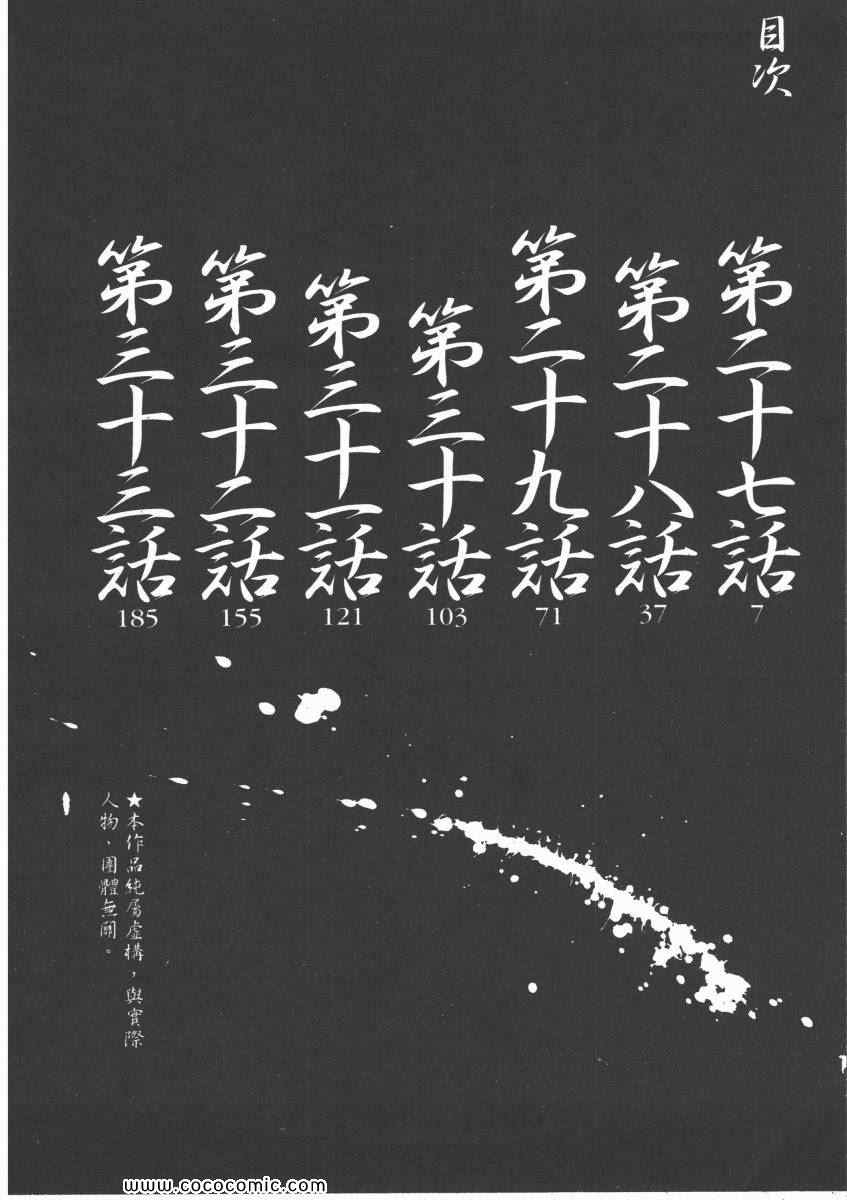 目次
第二十七話
7
第二十八話
37
第二十九話
71
第三十話
103
第三十一話
121
第三十二話
155
第三十三話
185
★本作品純屬虛構，與實際
人物、團體無關。
www.cococomic.com